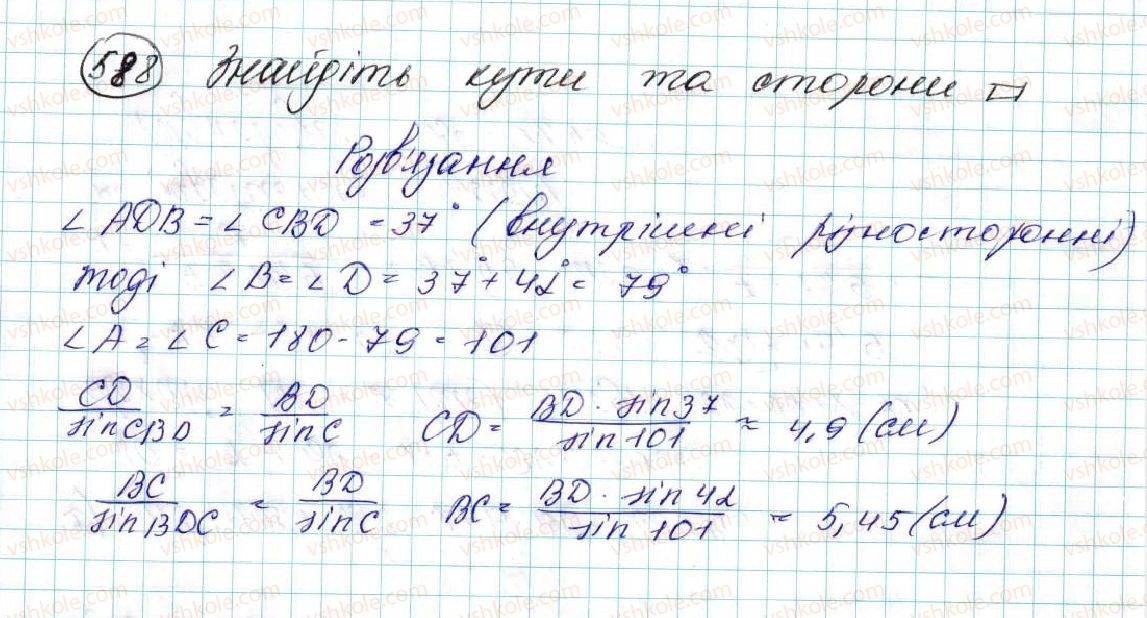 588 Знайдіть кути та сторони ▱
Розв'язання
∠ADB = ∠CBD = 37° (внутрішні різносторонні)
тоді ∠B = ∠D = 37° + 42° = 79°
∠A = ∠C = 180 - 79 = 101
CD/sin CBD = BD/sin C CD = BD · sin 37/sin 101 ≈ 4,9 (см)
BC/sin BDC = BD/sin C BC = BD · sin 42/sin 101 ≈ 5,45 (см)
vshkole.com